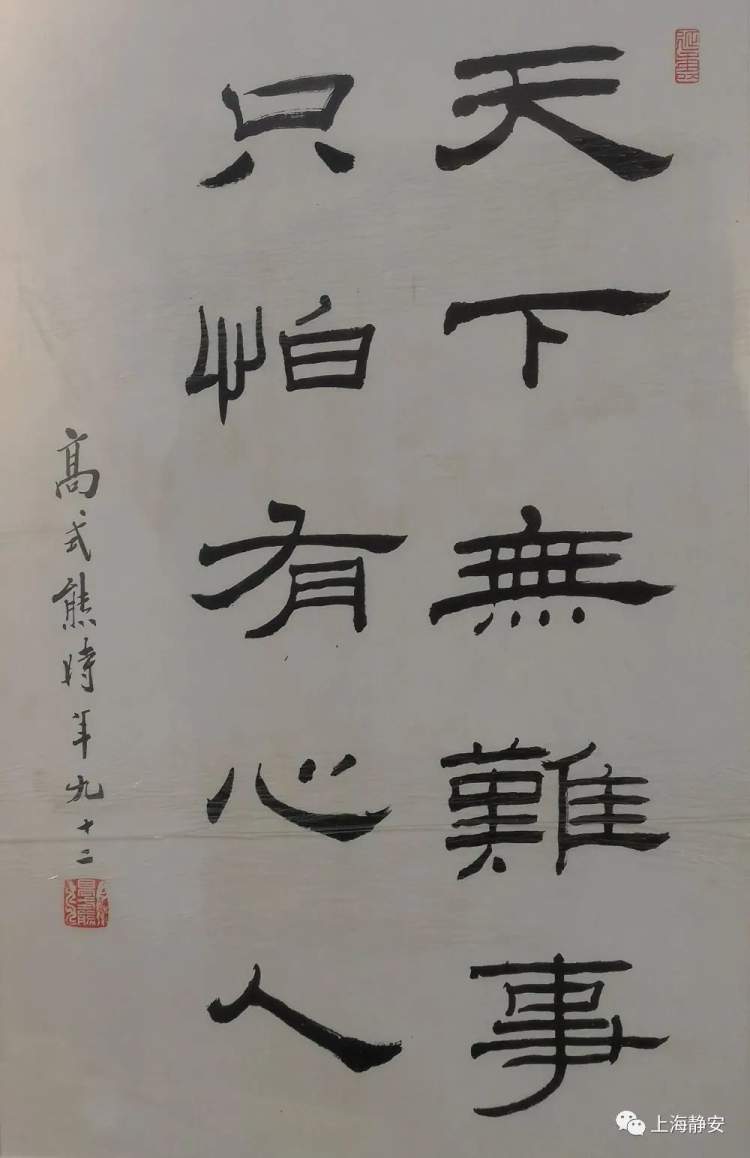 天下無難事
只怕有心人
高式熊時年九十二
上海静安